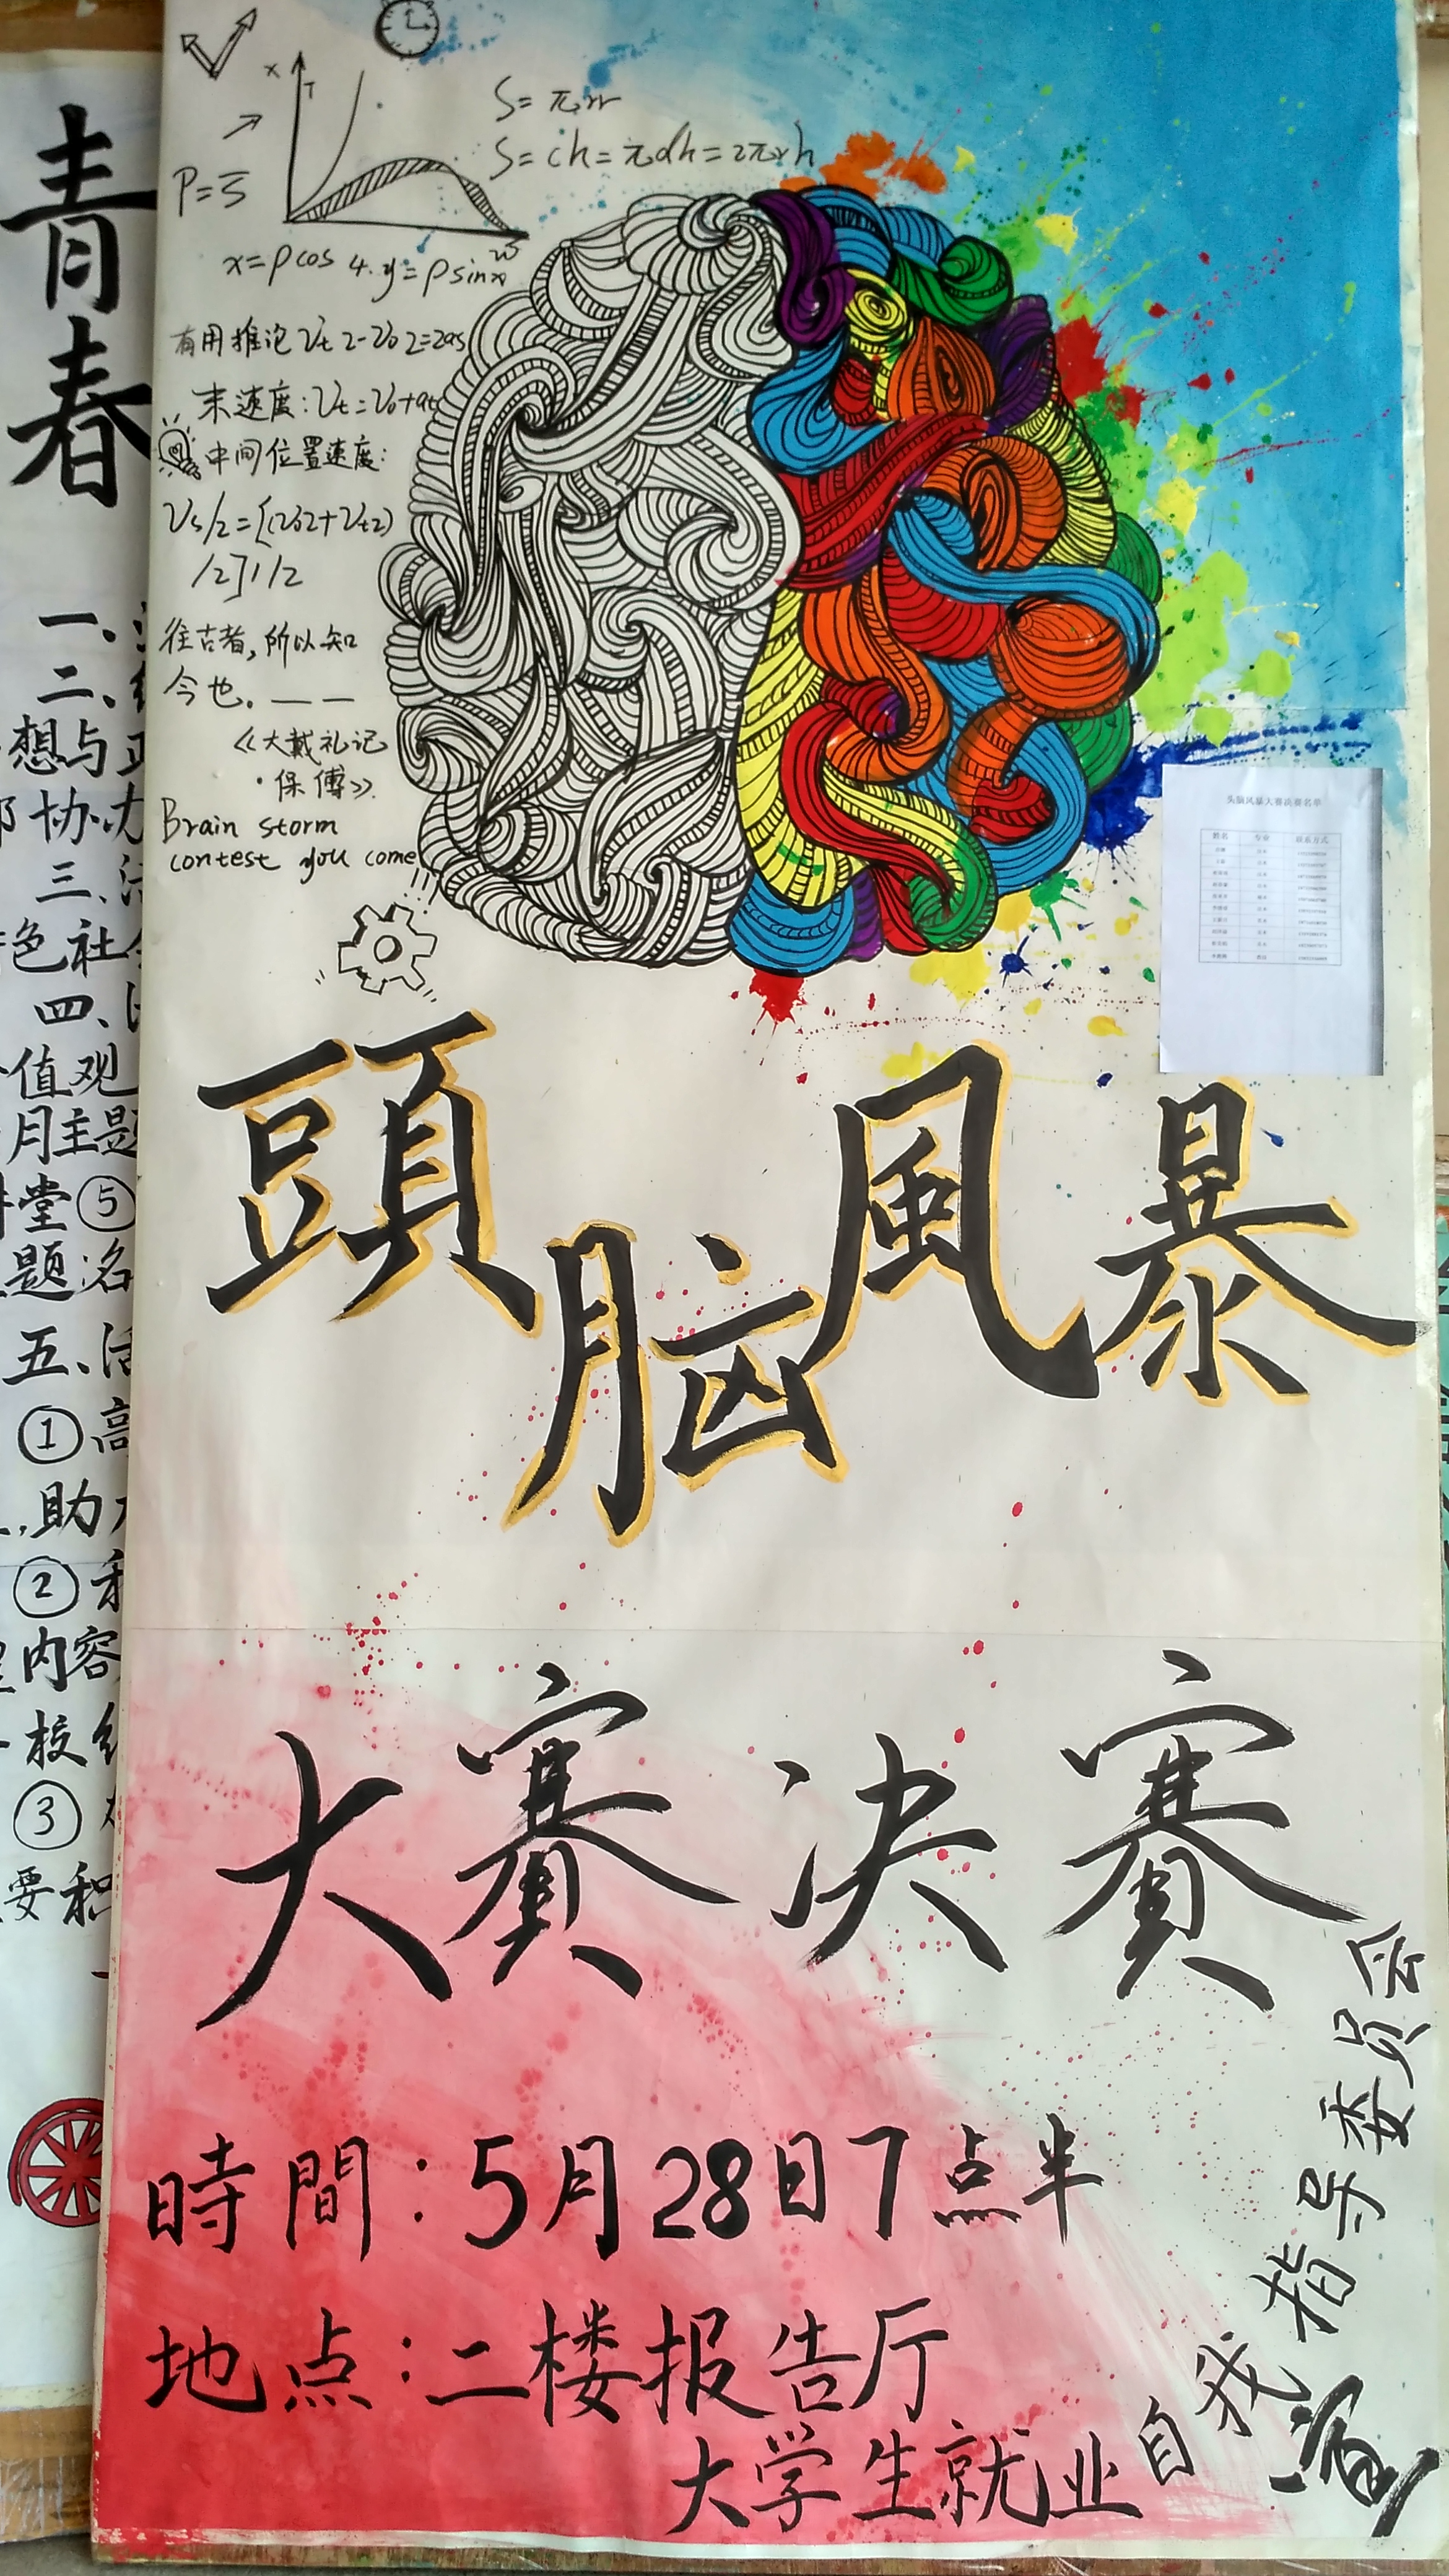 青
春
一、
二、
想与
协
三、
色社
四、
值观
月主题
堂⑤
题名
五、活
①高
助
②
内容
校
③
要积
X
T
P=
S=πrr
S=ch=πdh=2πrh
x=ρcos 4. y=ρsin
有用推论Vt2-V02=2as
末速度:Vt=V0+at
中间位置速度:
Vs/2=[(V02+Vt2)
/2]1/2
往古者,所以知
今也.——
《大戴礼记
·保傅》.
Brain storm
contest you come
头脑风暴大赛决赛名单
姓名 专业 联系方式
頭脑風暴
大賽决賽
時間:5月28日7点半
地点:二楼报告厅
大学生就业自我指导委员会
宣